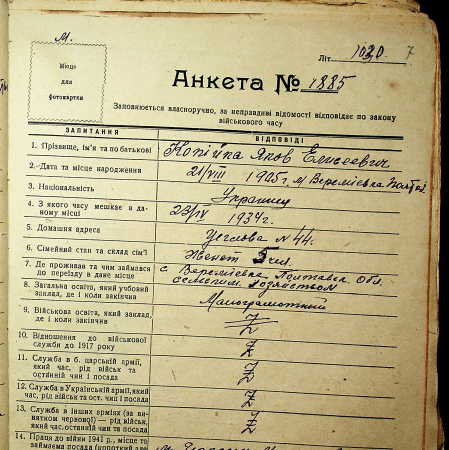 М.
Літ 1030. 7
Місце
для
фотокартки
Анкета № 1885
Заповнюється власноручно, за неправдиві відомості відповідає по закону
військового часу
ЗАПИТАННЯ ВІДПОВІДІ
1. Прізвище, ім'я та по батькові Копійка Яков Елисеевич
2. Дата та місце народження 21/VIII 1905 г. м Веремієвка
3. Національність Украинец
4. З якого часу мешкає в да-
ному місці 23/IV 1934 г.
5. Домашня адреса № 44.
6. Сімейний стан та склад сім'ї Женат 5 чел.
7. Де проживав та чим займався
до переїзду в дане місце с Веремієвка Полтавск. Обл.
сельским хозяйством
8. Загальна освіта, який учбовий
заклад, де і коли закінчив Малограмотный
9. Військова освіта, який заклад,
де і коли закінчив Z
10. Відношення до військової
служби до 1917 року Z
11. Служба в б. царській армії,
час, рід військ та
останній чин і посада Z
12. Служба в Українській армії, який
час, рід військ та ост. чин і посада Z
13. Служба в інших арміях (за ви-
нятком червоної) — рід військ,
який час, останній чин та посада Z
14. Праця до війни 1941 р., місце та
займаема посада (короткий